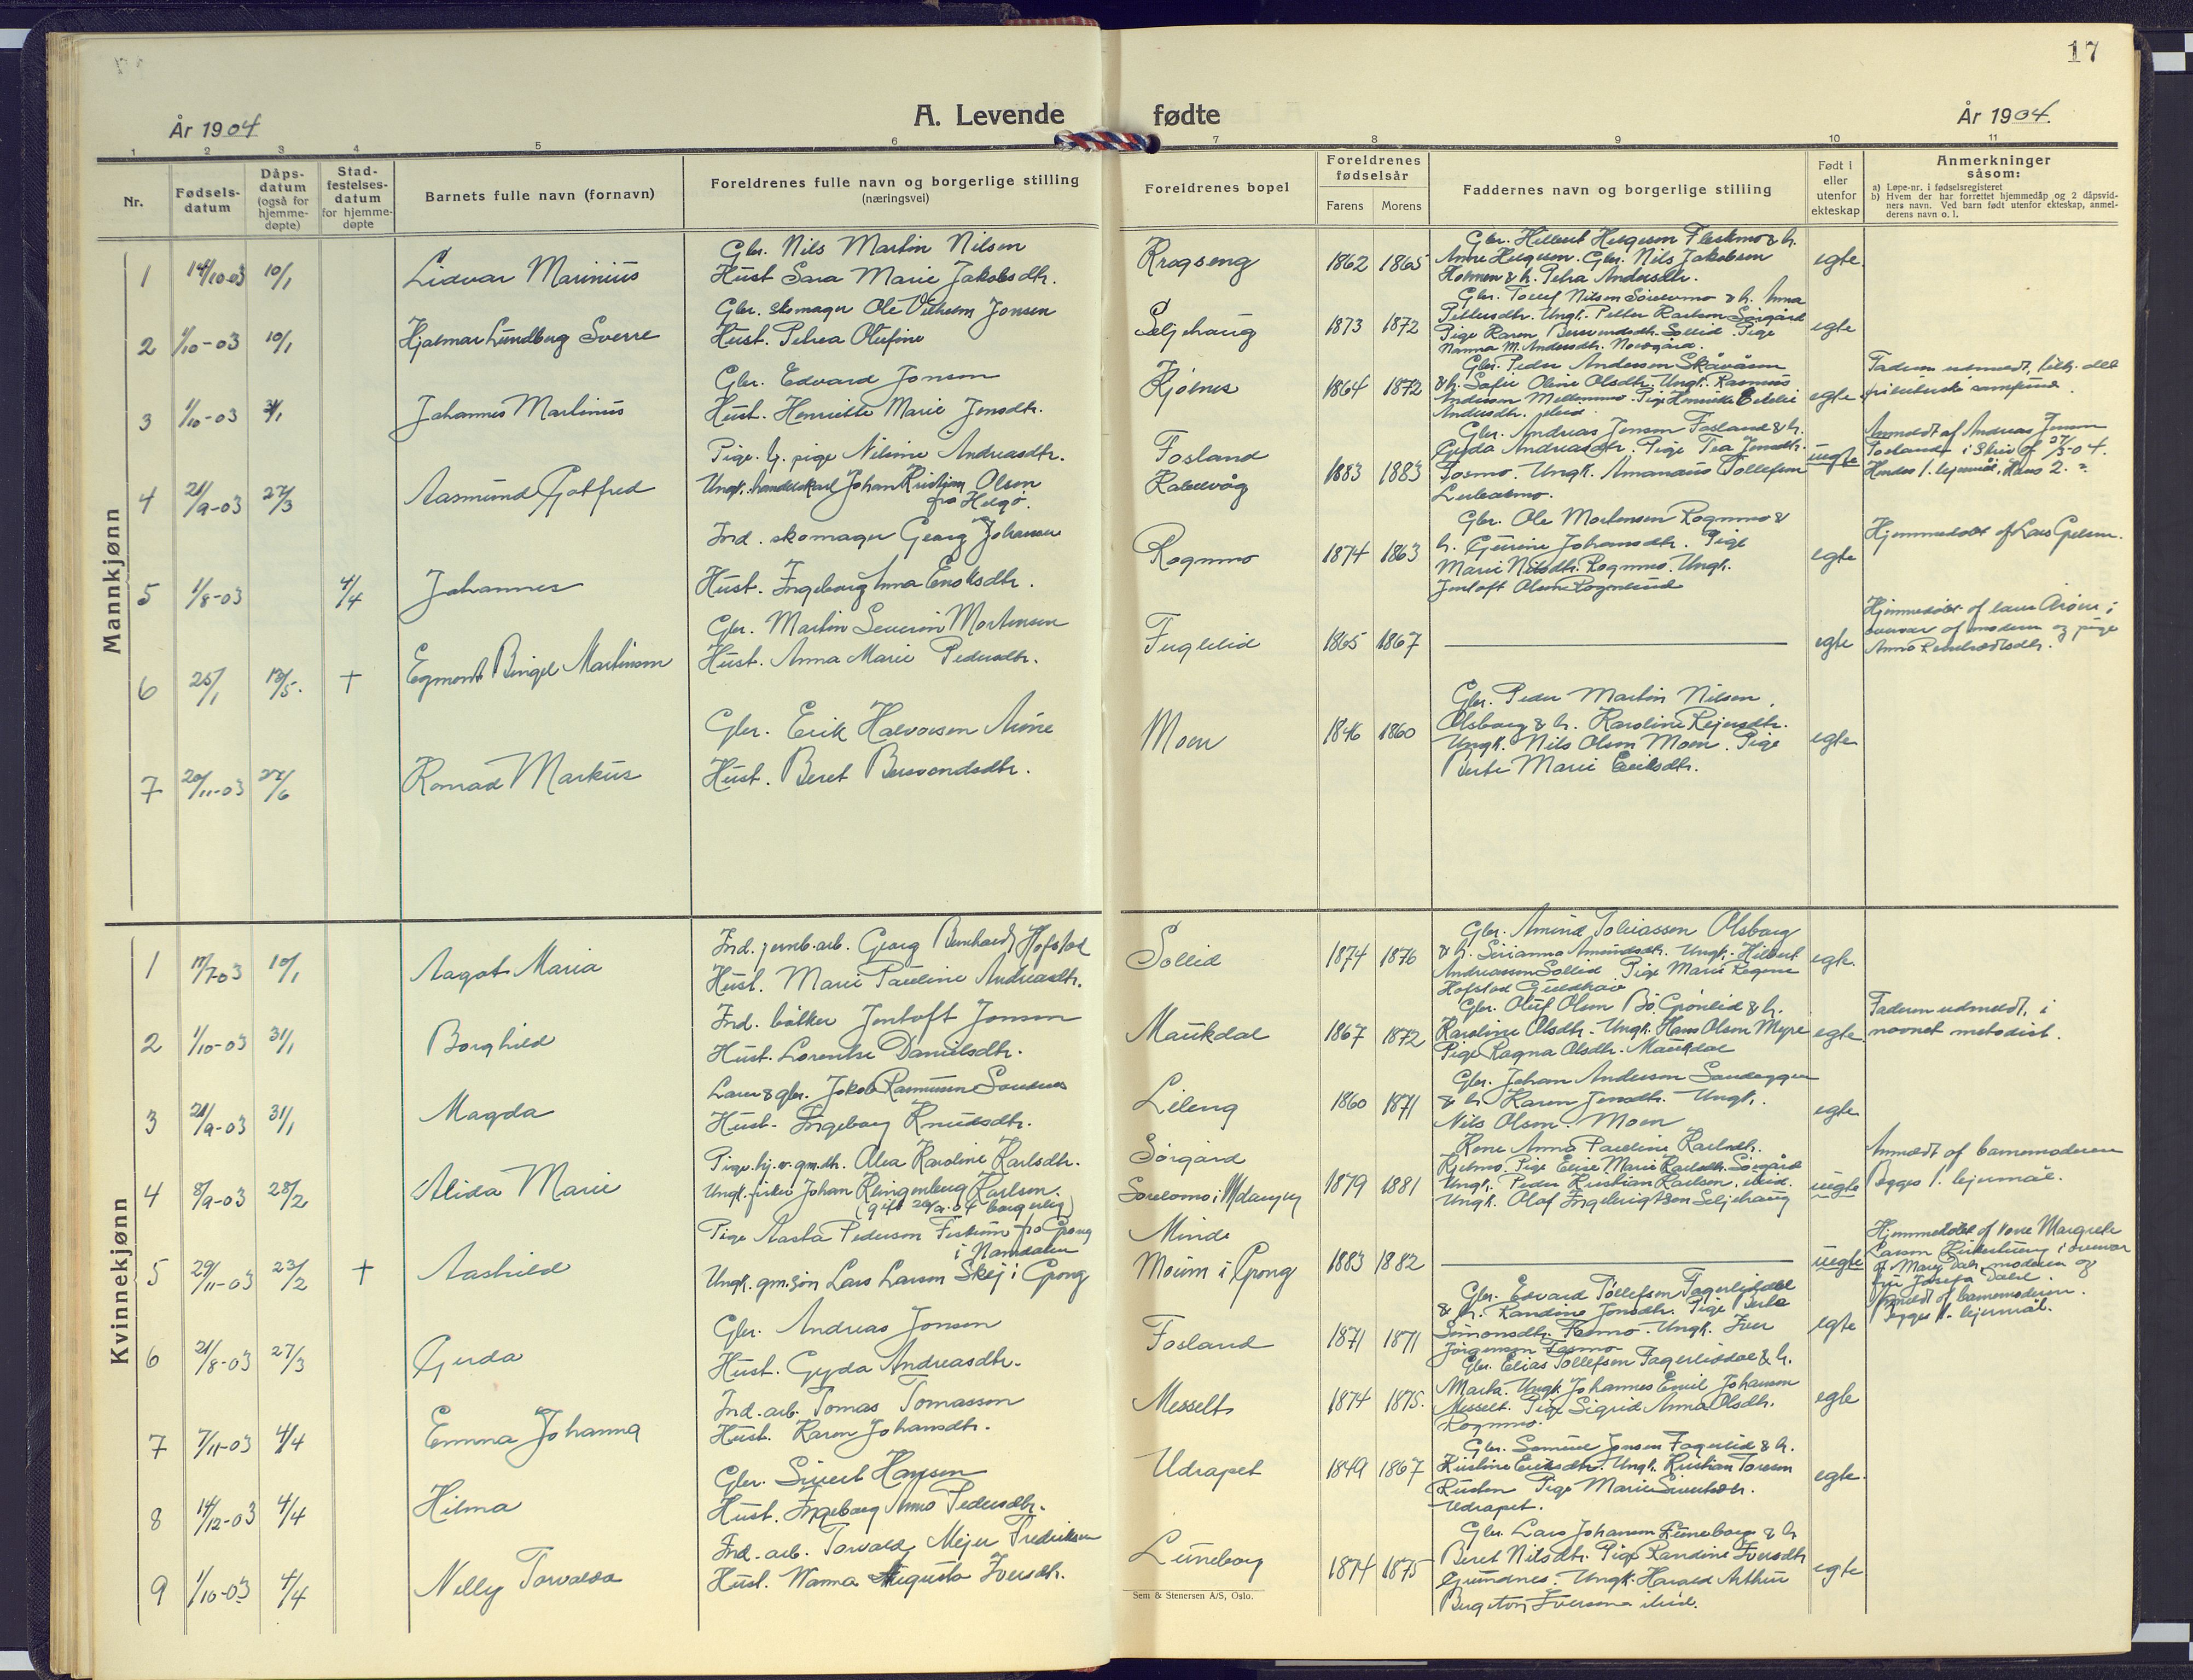 17
År 1904
A. Levende fødte
År 1904.
1 2 3 4 5 6 7 8 9 10 11
Nr.
Fødsels-datum
Dåps-datum (også for hjemme-døpte)
Stad-festelses-datum for hjemme-døpte
Barnets fulle navn (fornavn)
Foreldrenes fulle navn og borgerlige stilling (næringsvei)
Foreldrenes bopel
Foreldrenes fødselsår
Farens Morens
Faddernes navn og borgerlige stilling
Født i eller utenfor ekteskap
Anmerkninger såsom:
a) Løpe-nr. i fødselsregisteret
b) Hvem der har forrettet hjemmedåp og 2 dåpsvidners navn. Ved barn født utenfor ekteskap, anmelderens navn o. l.
Mannkjønn
1 14/10-03 10/1 Lidvar Marinius
Gbr. Nils Martin Nilsen
Hust. Sara Marie Jakobsdtr.
Krogseng 1862 1865
Gbr. Hilbert Helgesen Fleskmo & h.
Anne Helgesen. Gbr. Nils Jakobsen
Holmen & h. Petra Andersdtr.
egte
2 1/10-03 10/1 Hjalmar Lundberg Sverre
Gbr. skomager Ole Vilhelm Jonsen
Hust. Petrea Olufine
Seljehaug 1873 1872
Gbr. Tollef Nilsen Sørelvmo & h. Anna
Pettersdtr. Ungk. Petter Karlsen Sørgård
Pige Karen Bersvendsdtr. Sollid. Pige
Nanna M. Andersdtr. Nordgård.
egte
3 1/10-03 31/1 Johannes Martinus
Gbr. Edvard Jonsen
Hust. Henriette Marie Jensdtr.
Kjølnes 1864 1872
Gbr. Peder Andersen Skåvåsen
& h. Sofie Oline Olsdtr. Ungk. Rasmus
Andersen Mellemmo. Pige Henrikke
Andersdtr.
egte
Faderen udmeldt, tilh. det
samfund.
4 21/9-03 27/3 Aasmund Gotfred
Pige. h. pige Nilsine Andreasdtr.
Ungk. handelskarl Johan Kristian Olsen
fra Helgø.
Fosland
1883 1883
Gbr. Andreas Jensen Fosland & h.
Gyda Andreasdtr. Pige Tea Jensdtr.
Fosmo. Ungk. Amandus Tollefsen
uegte
Anmeldt af Andreas Jensen
Fosland i Skriv af 27/3-04.
Hendes 1. lejermål, Hans 2. ?
5 1/8-03 4/4 Johannes
Ind. skomager Georg Johansen
Hust. Ingeborg Anna Enoksdtr.
Rognmo 1874 1863
Gbr. Ole Mortensen Rognmo &
h. Gurine Johansdtr. Pige
Marie Nilsdtr. Rognmo. Ungk.
Jentoft Olsen Rognlund
egte
Hjemmedøbt af Lars
6 25/1 13/5. + Egmont Bingel Martinsen
Gbr. Martin Severin Mortensen
Hust. Anna Marie Pedersdtr.
Fuglelid 1865 1867
egte
Hjemmedøbt af i
overvær af moderen og pige
Anna
7 20/11-03 27/6 Konrad Markus
Gbr. Erik Halvorsen Moe
Hust. Beret Bersvendsdtr.
Moen 1846 1860
Gbr. Peder Martin Nilsen,
Olsborg & h. Karoline Rejersdtr.
Ungk. Nils Olsen Moen. Pige
Berte Marie Eriksdtr.
egte
Kvinnekjønn
1 17/7-03 10/1 Aagot Maria
Ind. jernb.arb. Georg Bernhard Hofstad
Hust. Marie Pauline Andreasdtr.
Sollid 1874 1876
Gbr. Amund Tobiassen Olsborg
& h. Sirianna Amundsdtr. Ungk. Hilbert
Andreassen Sollid. Pige Marie Regine
Hofstad Guldhav
egte
2 1/10-03 31/1 Borghild
Ind. bøtker Jentoft Jensen
Hust. Lorentse Danielsdtr.
Maukdal 1867 1872
Gbr. Oluf Olsen Bö. Grønlid & h.
Karoline Olsdtr. Ungk. Hans Olsen Myre
Pige Ragna Olsdtr. Maukdal
egte
Faderen udmeldt, i
navnet metodist.
3 21/9-03 31/1 Magda
Lærer & gbr. Jakob Rasmussen Sandnes
Hust. Ingeborg Knudsdtr.
Lileng 1860 1871
Gbr. Johan Andersen Sandeggen
& h. Karen Jensdtr. Ungk.
Nils Olsen. Moen
egte
4 8/9-03 28/2 Alida Marie
Pige. hj.v. gm.dtr. Alea Karoline Karlsdtr.
Ungk. fisker Johan Klingenberg Karlsen.
(gift borgerlig)
Sørgård
Sørelvmo i 1879 1881
Kone Anna Pauline Karlsdtr.
Kjelmo. Pige Elise Marie Karlsdtr. Sørgård
Ungk. Peder Kristian Karlsen, ibid.
Ungk. Olaf Ingebrigtsen Seljehaug
uegte
Anmeldt af barnemoderen
Begges 1. lejermål.
5 29/11-03 23/2 + Aashild
Pige Aasta Pedersen Fiskum fra Grong
i Namdalen
Ungk. gm.søn Lars Larsen Skej i Grong
Minde
Moum i Grong 1883 1882
uegte
Hjemmedøbt af kone Margrete
Larsen i overvær
af Mary Dahl, moderen og
fru Josefa Dahl.
Anmeldt af barnemoderen.
Begges 1. lejermål.
6 21/8-03 27/3 Gerda
Gbr. Andreas Jensen
Hust. Gyda Andreasdtr.
Fosland 1871 1871
Gbr. Edvard Tollefsen Fagerliddal
& h. Randine Jonsdtr. Pige Berte
Simonsdtr. Fosmo. Ungk. Iver
Jørgensen Fosmo
egte
7 7/11-03 4/4 Emma Johanna
Ind. arb. Tomas Tomassen
Hust. Karen Johansdtr.
Messelt 1874 1875.
Gbr. Elias Tollefsen Fagerliddal & h.
Marta. Ungk. Johannes Emil Johansen
Messelt. Pige Sigrid Anna Olsdtr.
Rognmo.
egte
8 14/12-03 4/4 Hilma
Gbr. Sivert Hansen
Hust. Ingeborg Anna Pedersdtr.
Udrapet 1849 1867
Gbr. Samuel Jensen Fagerlid & h.
Kristine Eriksdtr. Ungk. Kristian Toresen
Rusten Pige Marie Sivertsdtr.
Udrapet.
egte
9 1/10-03 4/4 Nelly Torvalda
Ind. arb. Torvald Mejer Fredriksen
Hust. Wanna Augusta Iversdtr.
Luneborg 1874 1875
Gbr. Lars Johansen Luneborg & h
Beret Nilsdtr. Pige Randine Iversdtr
Grundnes. Ungk. Harald Arthur
Bergiton Iversen ibid.
egte
Sem & Stenersen A/S, Oslo.